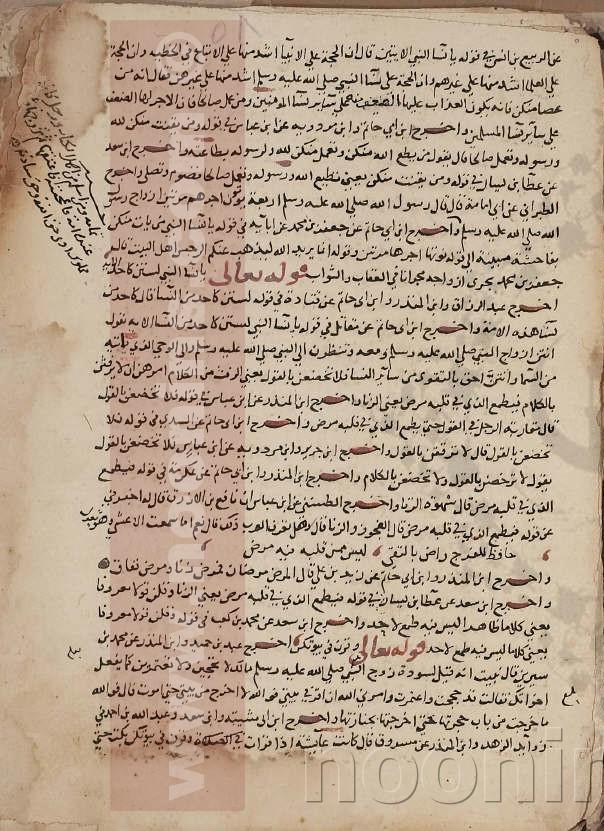 عن الربيع بن انس في قوله يا نسا النبي الايتين قال ان الحجة على الانبيا اشد منها على الاتباع في الخطيه وان الحجة
على العلما اشد منها على غيرهم وان الحجة على نسا النبي صلى الله عليه وسلم اشد منها على غيرهن فقال انه من
عصا منكن فانه يكون العذاب عليها الضعف منه على ساير نسا المومنين ومن عمل صالحا فان الاجر لها الضعف
على ساير نسا المسلمين واخرج ابن ابي حاتم وابن مردويه عن ابن عباس في قوله ومن يقنت منكن لله
ورسوله وتعمل صالحا قال يقول من يطع الله منكن وتعمل منكن لله ولرسوله بطاعته واخرج ابن سعد
عن عطا بن يسار في قوله ومن يقنت منكن يعني تطيع الله ورسوله وتعمل صالحا تصوم وتصلي واخرج
الطبراني عن ابي امامة قال قال رسول الله صلى الله عليه وسلم اربعة يوتون اجرهم مرتين ازواج رسول
الله صلى الله عليه وسلم واخرج ابن ابي حاتم عن جعفر بن محمد عن ابايه في قوله يا نسا النبي من يات منكن
بفاحشة مبينة الى قوله نوتها اجرها مرتين وقوله انما يريد الله ليذهب عنكم الرجس اهل البيت قال
جعفر بن محمد يجري ازواجه مجرانا في العقاب والثواب قوله تعالى يا نسا النبي لستن كاحد الايه
اخرج عبد الرزاق وابن المنذر وابن ابي حاتم عن قتادة في قوله لستن كاحد من النسا قال كاحد من
نسا هذه الامة واخرج ابن ابي حاتم عن مقاتل في قوله يا نسا النبي لستن كاحد من النسا الايه يقول
انتن ازواج النبي صلى الله عليه وسلم ومعه وتنظرن الى النبي صلى الله عليه وسلم والى الوحي الذي ياتيه
من السما وانتن احق بالتقوى من ساير النسا فلا تخضعن بالقول يعني الرفث من الكلام امرهن ان لا يرفثن
بالكلام فيطمع الذي في قلبه مرض يعني الزنا واخرج ابن المنذر عن ابن عباس في قوله فلا تخضعن بالقول
قال مقاربة الرجل في القول حتى يطمع الذي في قلبه مرض واخرج ابن ابي حاتم عن السدي في قوله فلا
تخضعن بالقول قال لا ترفثن بالقول واخرج ابن جرير وابن مردويه عن ابن عباس فلا تخضعن بالقول
يقول لا ترخصن بالقول ولا تخضعن بالكلام واخرج ابن المنذر وابن ابي حاتم عن عكرمة في قوله فيطمع
الذي في قلبه مرض قال شهوة الزنا واخرج الطستي عن ابن عباس ان نافع بن الازرق قال له اخبرني
عن قوله فيطمع الذي في قلبه مرض قال الفجور والزنا قال وهل تعرف العرب ذلك قال نعم اما سمعت الاعشى وهو يقول
حافظ للفرج راض بالتقى ليس ممن قلبه فيه مرض
واخرج ابن المنذر وابن ابي حاتم عن زيد بن علي قال المرض مرضان فمرض زنا ومرض نفاق
واخرج ابن سعد عن عطا بن يسار في قوله فيطمع الذي في قلبه مرض يعني الزنا وقلن قولا معروفا
يعني كلاما ظاهرا ليس فيه طمع لاحد واخرج ابن سعد عن محمد بن كعب في قوله وقلن قولا معروفا
يعني كلاما ليس فيه طمع لاحد قوله تعالى وقرن في بيوتكن اخرج عبد بن حميد وابن المنذر عن محمد بن
سيرين قال نبيت انه قيل لسودة زوج النبي صلى الله عليه وسلم مالك لا تحجين ولا تعتمرين كما يفعل
اخواتك فقالت قد حججت واعتمرت وامرني الله ان اقر في بيتي فوالله لا اخرج من بيتي حتى اموت قال فوالله
ما خرجت من باب حجرتها حتى اخرجت بجنازتها واخرج ابن ابي شيبة وابن سعد وعبد الله بن احمد في
زوايد الزهد وابن المنذر عن مسروق قال كانت عايشة اذا قرات في الصلاة وقرن في بيوتكن بكت حتى
noonin